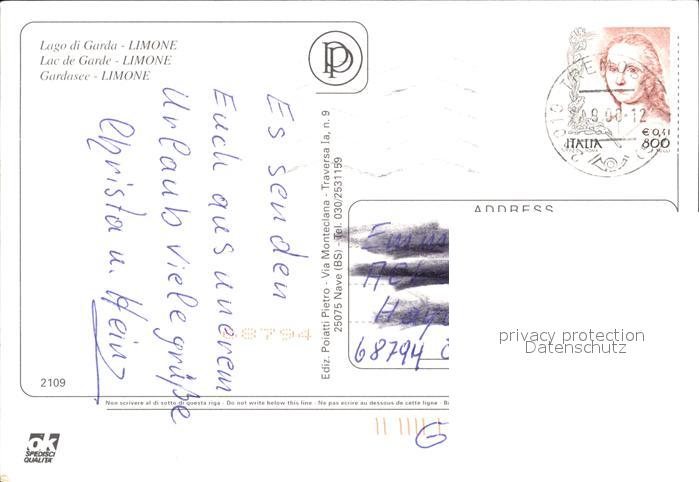 Lago di Garda - LIMONE
Lac de Garde - LIMONE
Gardasee - LIMONE
Es senden
Euch aus unerem
Urlaub viele grüße
Christa u. Heinz
2109
68794
Ediz. Poiatti Pietro - Via Monteclana - Traversa Ia, n. 9
25075 Nave (BS) - Tel. 030/2531159
PP
ITALIA
€ 0,41
800
ADDRESS
68794
privacy protection
Datenschutz
Non scrivere al di sotto di questa riga - Do not write below this line - Ne pas ecrire au dessous de cette ligne -
ok
SPEDISCI
QUALITA'